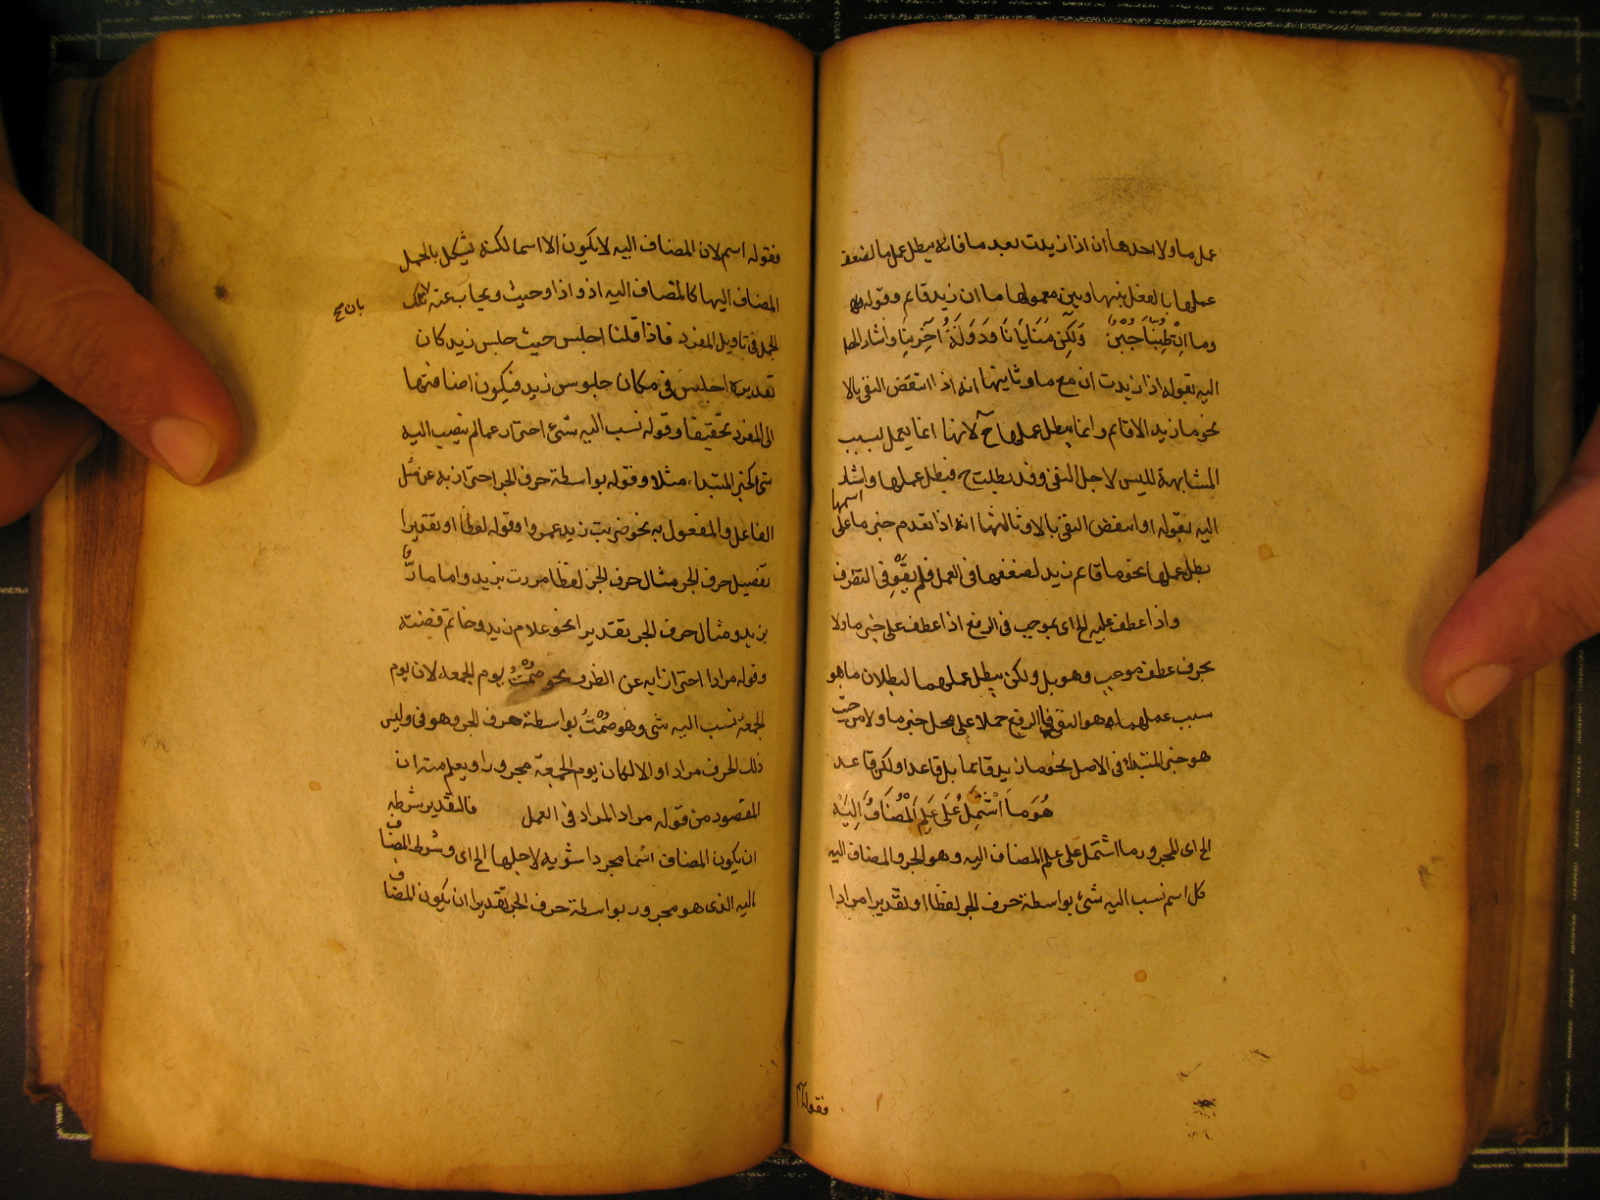 عمل ما ولا احدها ان اذا زيدت بعد ما فانه يبطل عمل ما لضعف
عملها بالفصل بينها وبين معمولها ما ان زيد قائم وقوله
وما اِنْ طِبُّنَا جُبْنٌ وَلَكِنْ مَنَايَانَا وَدَوْلَةُ آخَرِينَا واشار المص
اليه بقوله اذا زيدت ان مع ما وثانيتها انه اذا انتقض النفى بالا
نحو ما زيد الا قائم وانما يبطل عملها ح لانها انما يعمل لسبب
المشابهة لليس لاجل النفى وقد بطلت ح فبطل عملها واشار
اليه بقوله او انتقض النفى بالا وثالثتها انه اذا تقدم خبر ما على اسمها
بطل عملها نحو ما قائم زيد لضعفها فى العمل فلم يقو فى التصرف
واذا عطف عليه الخ اى بموجب فى الرفع اذا عطف على خبر ما ولا
بحرف عطف موجب وهو بل ولكن يبطل عملهما لبطلان ما هو
سبب عملهما وهو النفى فالرفع حملا على محل خبر ما ولا من حيث
هو خبر المبتداء فى الاصل نحو ما زيد قائما بل قاعد او لكن قاعد
هُوَ مَا اشْتَمَلَ عَلَى عَلَمِ الْمُضَافِ اِلَيْهِ
الخ اى المجرور ما اشتمل على علم المضاف اليه وهو الجر والمضاف اليه
كل اسم نسب اليه شئ بواسطة حرف الجر لفظا او تقديرا مرادا
فقوله
فقوله اسم لان المضاف اليه لا يكون الا اسما لكنه يشكل بالجمل
المضاف اليها كالمضاف اليه اذ واذا وحيث ويجاب عنه تلك
بان صح
الجمل فى تاويل المفرد فاذا قلنا اجلس حيث جلس زيد كان
تقديره اجلس فى مكان جلوس زيد فيكون اضافتها
الى المفرد تحقيقا وقوله نسب اليه شئ احتراز عما لم ينسب اليه
شئ كخبر المبتداء مثلا وقوله بواسطة حرف الجر احتراز به عن مثل
الفاعل والمفعول به نحو ضربت زيد عمروا وقوله لفظا او تقديرا
تفصيل حرف الجر مثال حرف الجر لفظا مررت بزيد واما مارّ
بزيد ومثال حرف الجر تقديرا نحو غلام زيد وخاتم فضة
وقوله مرادا احترازا به عن الظرف نحو صُمْتُ يوم الجمعه لان يوم
الجمعة نسب اليه شئ وهو صُمْتُ بواسطة حرف الجر وهو فى وليس
ذلك الحرف مرادا والا لكان يوم الجمعة مجرورا ويعلم منه ان
المقصود من قوله مرادا المراد فى العمل فالتقدير شرطه
ان يكون المضاف اسما مجردا تنوينه لاجلها الخ اى وشرط المضاف
اليه الذى هو مجرور بواسطة حرف الجر تقديرا ان يكون المضاف